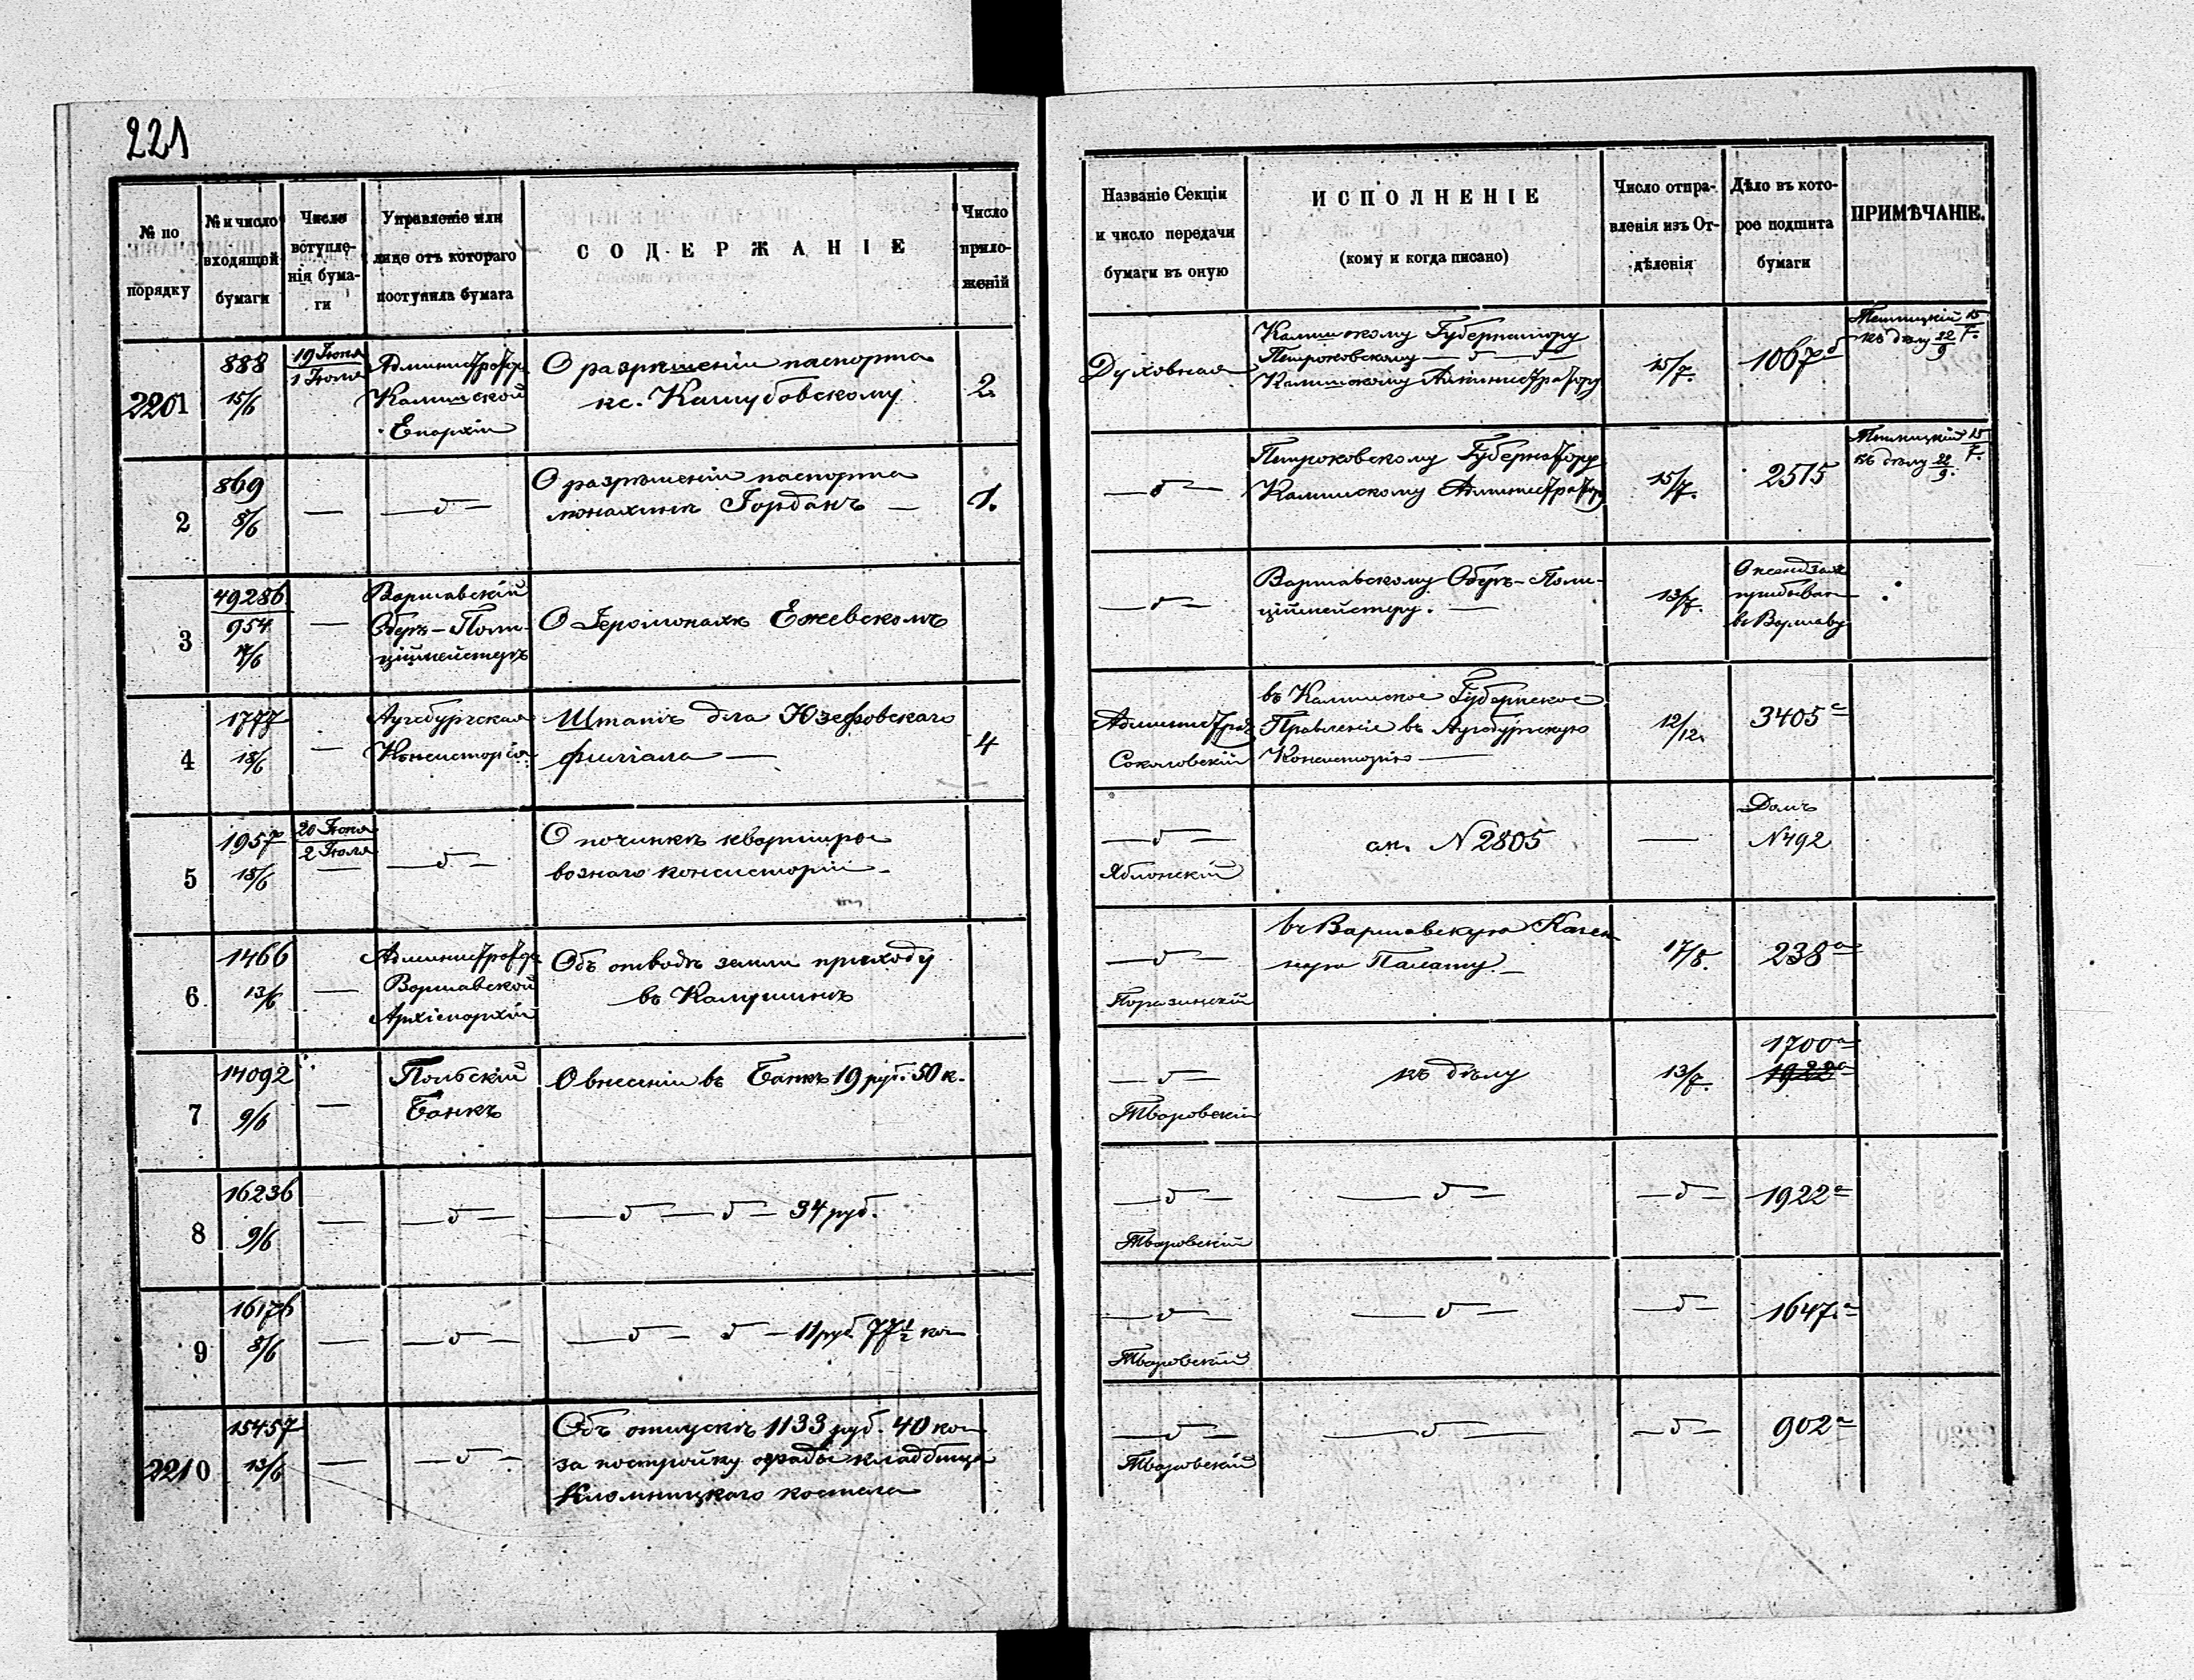 221
№ по порядку
№ и число входящей бумаги
Число вступленія бумаги
Управленіе или лице отъ котораго поступила бумага
СОДЕРЖАНІЕ
Число приложеній
Названіе Секціи и число передачи бумаги въ оную
ИСПОЛНЕНІЕ
(кому и когда писано)
Число отправленія изъ Отдѣленія
Дѣло въ которое подшита бумаги
ПРИМѢЧАНІЕ.
2201
888
15/6
19 Іюня
1 Іюля
Администраторъ
Калишской
Епархіи
О разрѣшеніи паспорта
кс. Кашубовскому
2.
Духовная
Калишскому Губернатору
Петроковскому — б — б —
Калишскому Администратору
15/7.
1067 б
къ дѣлу 22/9
2
869
8/6
—
— б —
О разрѣшеніи паспорта
монахинѣ Іорданъ —
1.
— б —
Петроковскому Губернатору
Калишскому Администратору
15/7.
2515
къ дѣлу 22/9.
3
49286
954
—
Варшавскій
Оберъ-Поли-
ціймейстеръ
О Іеромонахѣ Ежевскомъ
— б —
Варшавскому Оберъ-Поли-
ціймейстеру. —
13/7.
О ксендзахъ
прибывш
въ Варшаву
4
1777
18/6
—
Аугсбургская
Консисторія
Штатъ для Юзефовскаго
филіала —
4
Администр.
Соколовскій
въ Калишское Губернское
Правленіе въ Аугсбургскую
Консисторію —
12/12.
3405 а
5
1957
18/6
20 Іюня
2 Іюля
— б —
О починкѣ квартиры
вознаго консисторіи —
— б —
Яблонскій
ак. N 2805
—
Домъ
N 492
6
1466
13/6
—
Администраторъ
Варшавской
Архіепархіи
Объ отводѣ земли приходу
въ Калушинѣ
— б —
Поразинскій
въ Варшавскую Казен
ную Палату. —
17/8.
238 а
7
14092
9/6
—
Польскій
Банкъ
О внесеніи въ Банкъ 19 руб. 50 к.
— б —
Творовскій
къ дѣлу
13/7.
1700 а
1922 а
8
16236
9/6
—
— б —
— б — б — 34 руб.
— б —
Творовскій
— б —
— б —
1922 а
9
16176
8/6
—
— б —
— б — б — 11 руб. 77 1/2 коп
— б —
Творовскій
— б —
— б —
1647. а
2210
15457
13/6
—
— б —
Объ отпускѣ 1133 руб. 40 коп
за постройку ограды кладбища
Кломницкаго костела
— б —
Творовскій
— б —
— б —
902 а